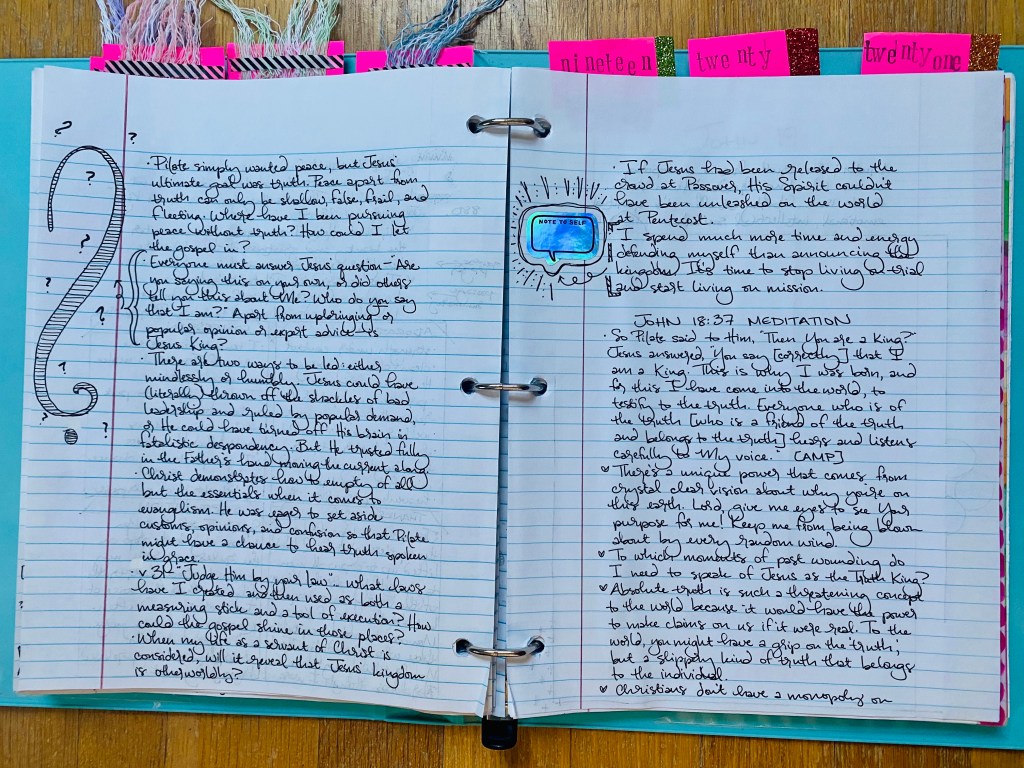 nineteen
twenty
twentyone
? ?
?
?
?
?
?
?
?
· Pilate simply wanted peace, but Jesus'
ultimate goal was truth. Peace apart from
truth can only be shallow, false, frail, and
fleeting. Where have I been pursuing
peace without truth? How could I let
the gospel in?
· Everyone must answer Jesus' question - "Are
you saying this on your own, or did others
tell you this about Me? Who do you say
that I am?" Apart from upbringing or
popular opinion or expert advice is
Jesus King?
· There are two ways to be led: either
mindlessly or humbly. Jesus could have
(literally) thrown off the shackles of bad
leadership and ruled by popular demand,
or He could have turned off His brain in
fatalistic despondency. But He trusted fully
in the Father's hand moving the current along.
· Christ demonstrates how to empty of all
but the essentials when it comes to
evanglism. He was eager to set aside
customs, opinions, and confusion so that Pilate
might have a chance to hear truth spoken
in grace.
· v 31 - "Judge Him by your law" - What laws
have I created and then used as both a
measuring stick and a tool of execution? How
could the gospel shine in those places?
· When my life as a servant of Christ is
considered, will it reveal that Jesus' kingdom
is otherworldly?
· If Jesus had been released to the
crowd at Passover, His Spirit couldn't
have been unleashed on the world
at Pentecost.
NOTE TO SELF
· I spend much more time and energy
defending myself than announcing the
kingdom. It's time to stop living on trial
and start living on mission.
JOHN 18:37 MEDITATION
· So Pilate said to Him, "Then You are a King?"
Jesus answered, "You say [correctly] that I
am a King. This is why I was born, and
for this I have come into the world, to
testify to the truth. Everyone who is of
the truth [who is a friend of the truth
and belongs to the truth] hears and listens
carefully to My voice." [AMP]
♥ There's a unique power that comes from
crystal clear vision about why you're on
this earth. Lord, give me eyes to see Your
purpose for me! Keep me from being blown
about by every random wind.
♥ To which moments of past wounding do
I need to speak of Jesus as the Truth King?
♥ Absolute truth is such a threatening concept
to the world because it would have the power
to make claims on us if it were real. To the
world, you might have a grip on the truth,
but a slippery kind of truth that belongs
to the individual.
♥ Christians don't have a monopoly on